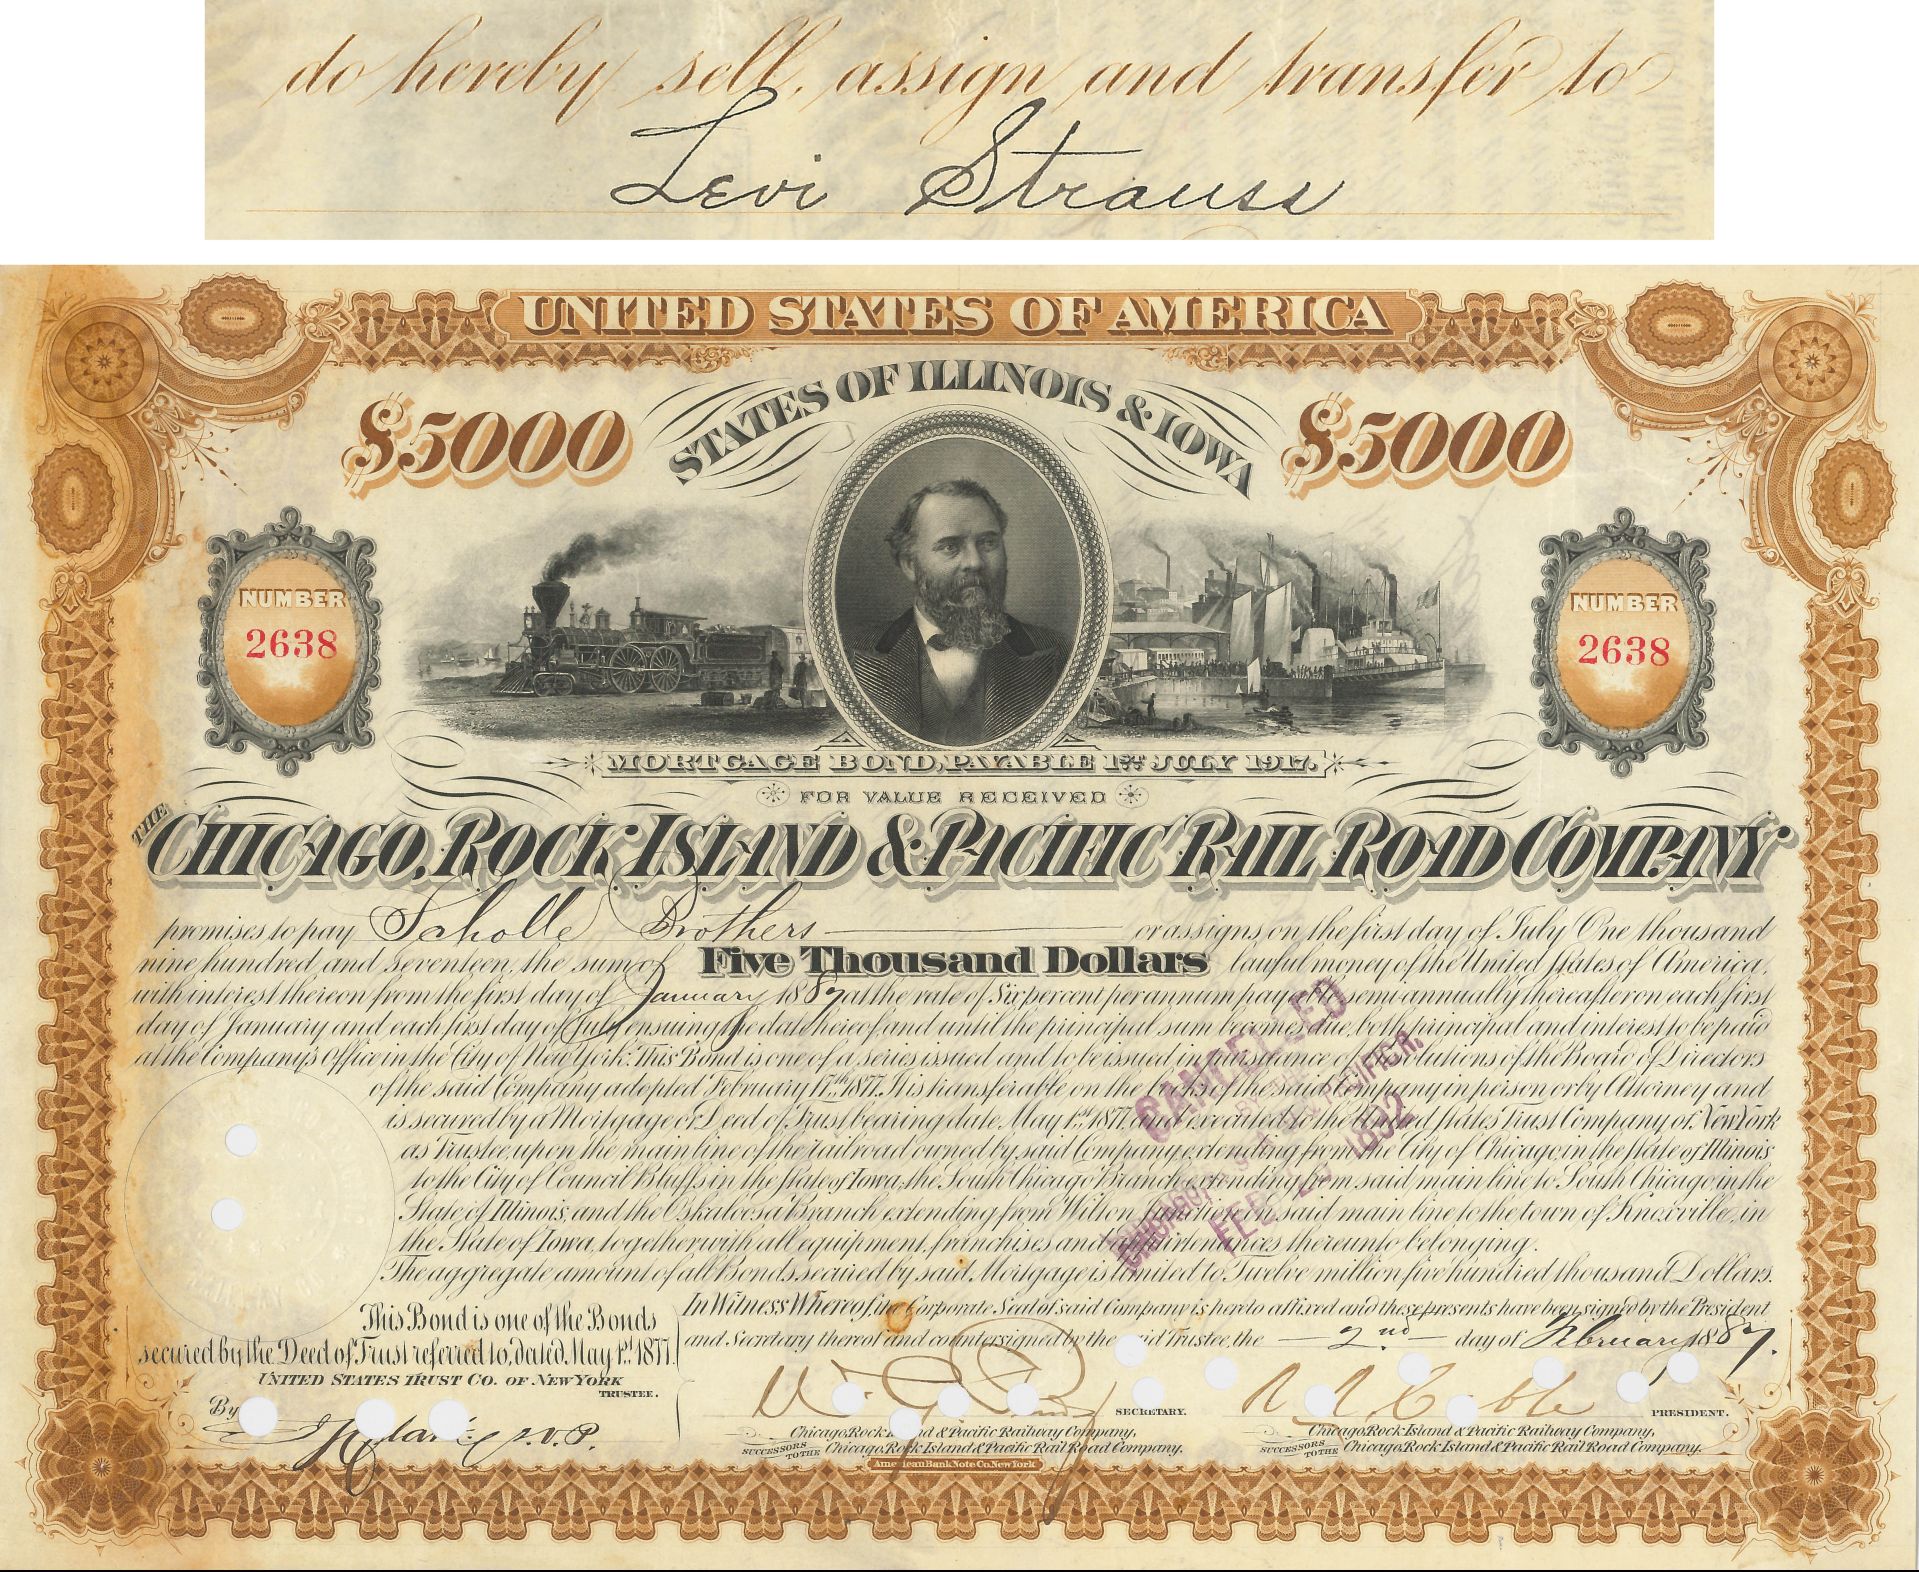 do hereby sell, assign and transfer to
Levi Strauss
UNITED STATES OF AMERICA
STATES OF ILLINOIS & IOWA
$5000 $5000
NUMBER
2638
NUMBER
2638
MORTGAGE BOND, PAYABLE 1ST JULY 1917.
FOR VALUE RECEIVED
THE CHICAGO, ROCK ISLAND & PACIFIC RAIL ROAD COMPANY
promises to pay Scholle Brothers or assigns on the first day of July One thousand
nine hundred and seventeen, the sum of Five Thousand Dollars lawful money of the United States of America,
with interest thereon from the first day of January 1887 at the rate of Six per cent per annum payable semi-annually thereafter on each first
day of January and each first day of July ensuing the date hereof, and until the principal sum becomes due, both principal and interest to be paid
at the Company's Office in the City of New York. This Bond is one of a series issued and to be issued in pursuance of Resolutions of the Board of Directors
of the said Company adopted February 17th 1877. It is transferable on the books of the said Company in person or by Attorney and
is secured by a Mortgage or Deed of Trust bearing date May 1st 1877, and executed to the United States Trust Company of New York
as Trustee, upon the main line of the railroad owned by said Company, extending from the City of Chicago in the State of Illinois
to the City of Council Bluffs in the State of Iowa, the South Chicago Branch extending from said main line to South Chicago in the
State of Illinois, and the Oskaloosa Branch extending from Wilton Junction in said main line to the town of Knoxville, in
the State of Iowa, together with all equipment, franchises and appurtenances thereunto belonging.
The aggregate amount of all Bonds secured by said Mortgage is limited to Twelve million five hundred thousand Dollars.
CANCELLED
BY
CHICAGO, R. I. & PACIFIC R.
FEB 1892
In Witness Whereof, the Corporate Seal of said Company is hereto affixed and these presents have been signed by the President
and Secretary thereof and countersigned by the said Trustee, the 2nd day of February 1887.
This Bond is one of the Bonds
secured by the Deed of Trust referred to, dated, May 1st 1877.
UNITED STATES TRUST CO. OF NEW YORK
TRUSTEE.
By
V.P.
SECRETARY.
Chicago, Rock Island & Pacific Railway Company,
SUCCESSORS TO THE Chicago, Rock Island & Pacific Rail Road Company.
R R Cable
PRESIDENT.
Chicago, Rock Island & Pacific Railway Company,
SUCCESSORS TO THE Chicago, Rock Island & Pacific Rail Road Company.
American Bank Note Co. New York